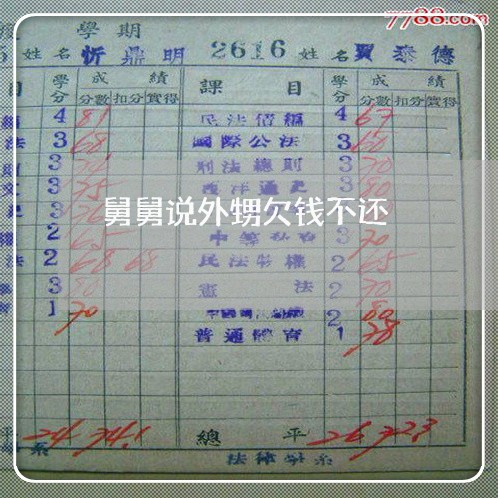 7788.com
學期
姓名 忻鼎明 2616 姓名 賈泰德
目 學分 成績 課目 學分 成績
分數 扣分 實得 分數 扣分 實得
4 81 民法債編 4 67
法 3 68 國際公法 3 60
3 刑法總則 3 70
3 75 西洋通史 3 80
舅舅说外甥欠钱不还
2 3 70
法 2 68 68 民法物權 2 65
3 80 憲法 2 70
1 70 2 80
普通體育 1 78
平 24 74.1 總平 26 72.3
系 法律學系